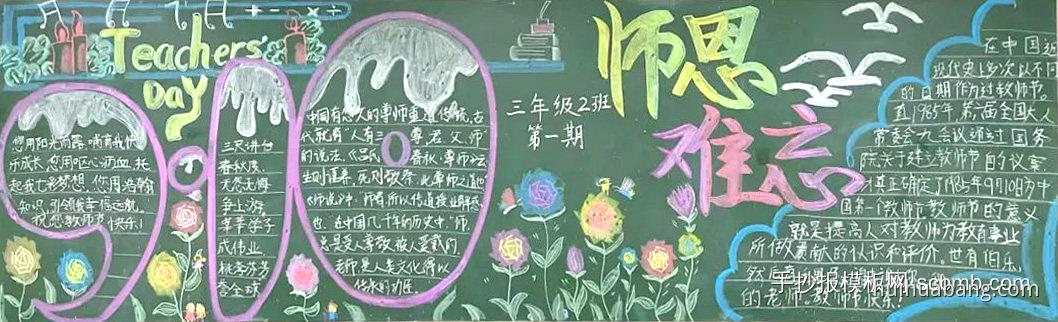 Teachers'
Day
9.10
师恩
难忘
三年级2班
第一期
您用阳光雨露,哺育我快
乐成长,您用呕心沥血,托
起我七彩梦想,您用浩翰
知识,引领我幸福远航。
祝您教师节快乐!
三尺讲台
春秋度,
无怨无悔
争上游
莘莘学子
成伟业,
桃李芬芳
香全球
中国有悠久的尊师重道传统,古
代就有"人有三 尊 君 父 师"
的说法,《吕氏 春秋·尊师》
生则谨养,死则敬祭,此尊师之道也
师说》中:"师者,所以传道授业解惑
也。"在中国几千年的历史中,"师"
总是受人尊敬,被人爱戴的
老师是人类文化得以
传承的功臣
在中国近
现代史上多次以不同
的日期作为过教师节。
直1985年,第六届全国人
常委会九会议通过国务
院关于建立教师节的议案
才真正确定了1985年9月10日为中
国第一个教师节教师节的意义
就是提高人对教师为教育事业
所做贡献的认识和评价。也有旧乐,
然
的老师:教师节快乐!
手抄报模板网-scbmh.com